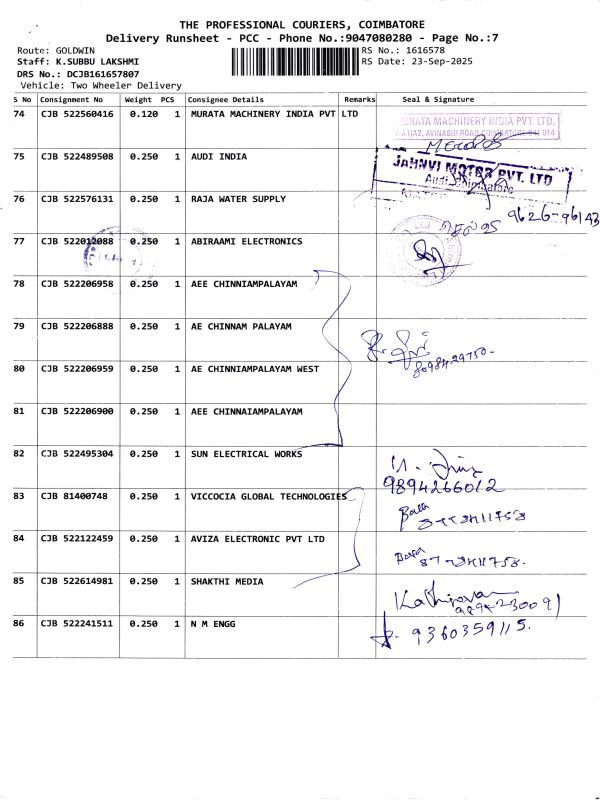 THE PROFESSIONAL COURIERS, COIMBATORE
Delivery Runsheet - PCC - Phone No.:9047080280 - Page No.:7
Route: GOLDWIN
RS No.: 1616578
Staff: K.SUBBU LAKSHMI
RS Date: 23-Sep-2025
DRS No.: DCJB161657807
Vehicle: Two Wheeler Delivery
S No Consignment No Weight PCS Consignee Details Remarks Seal & Signature
74 CJB 522560416 0.120 1 MURATA MACHINERY INDIA PVT LTD
MURATA MACHINERY INDIA PVT. LTD.
75 CJB 522489508 0.250 1 AUDI INDIA
JAHNVI MOTOR PVT. LTD
Audi Coimbatore
76 CJB 522576131 0.250 1 RAJA WATER SUPPLY
9626-96143
77 CJB 522012088 0.250 1 ABIRAAMI ELECTRONICS
78 CJB 522206958 0.250 1 AEE CHINNIAMPALAYAM
79 CJB 522206888 0.250 1 AE CHINNAM PALAYAM
80 CJB 522206959 0.250 1 AE CHINNIAMPALAYAM WEST
81 CJB 522206900 0.250 1 AEE CHINNAIAMPALAYAM
82 CJB 522495304 0.250 1 SUN ELECTRICAL WORKS
9894266012
83 CJB 81400748 0.250 1 VICCOCIA GLOBAL TECHNOLOGIES
Bala
84 CJB 522122459 0.250 1 AVIZA ELECTRONIC PVT LTD
85 CJB 522614981 0.250 1 SHAKTHI MEDIA
86 CJB 522241511 0.250 1 N M ENGG
9360359115.